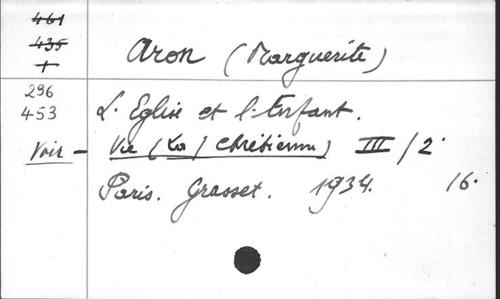 461
435
1
Aron (Marguerite)
296
453
L'Eglise et l'Enfant.
Voir - Vie (La) Chrétienne III/2°
Paris. Grasset. 1934. 16°